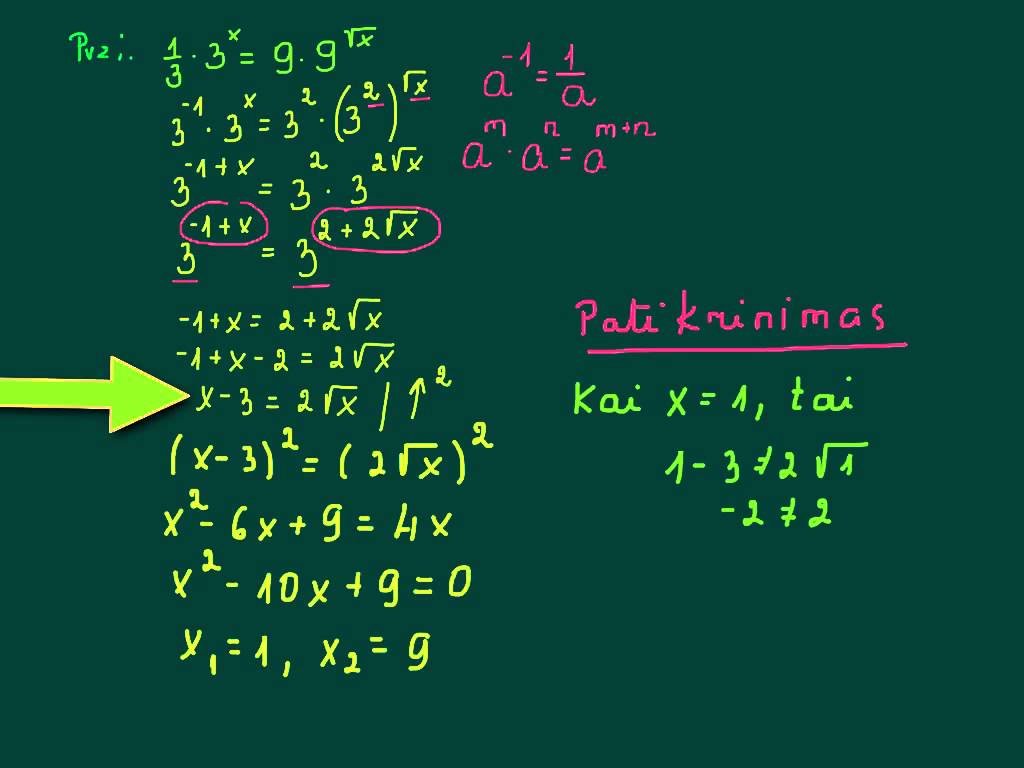 Pvz.: 1/3 · 3^x = 9 · 9^√x
3^-1 · 3^x = 3^2 · (3^2)^√x
3^-1+x = 3^2 · 3^2√x
3^-1+x = 3^2+2√x
-1+x = 2+2√x
-1+x-2 = 2√x
x-3 = 2√x / ↑^2
(x-3)^2 = (2√x)^2
x^2 - 6x + 9 = 4x
x^2 - 10x + 9 = 0
x₁ = 1, x₂ = 9
a^-1 = 1/a
a^m · a^n = a^m+n
Patikrinimas
Kai x = 1, tai
1 - 3 ≠ 2√1
-2 ≠ 2